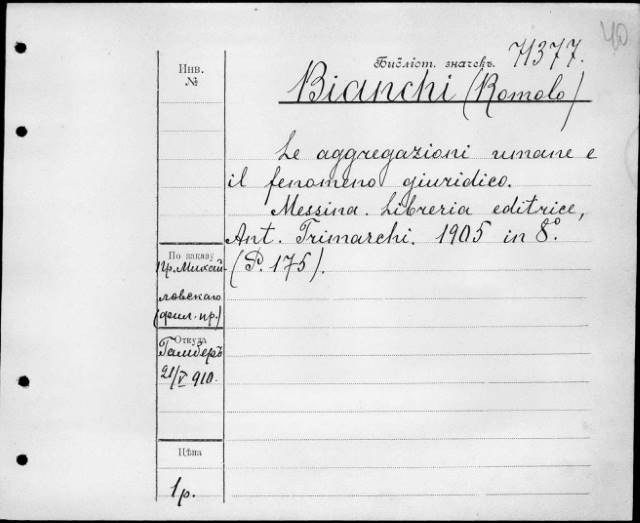 40
Библіот. значекъ. 71377.
Bianchi (Romolo)
Инв.
№
Le aggregazioni umane e
il fenomeno giuridico.
Messina. Libreria editrice,
Ant. Trimarchi. 1905 in 8°.
(P. 175).
По заказу
Пр. Михай
ловскаго
(фил. пр.)
Откуда
Гамберъ
21/V 910.
Цѣна
1р.